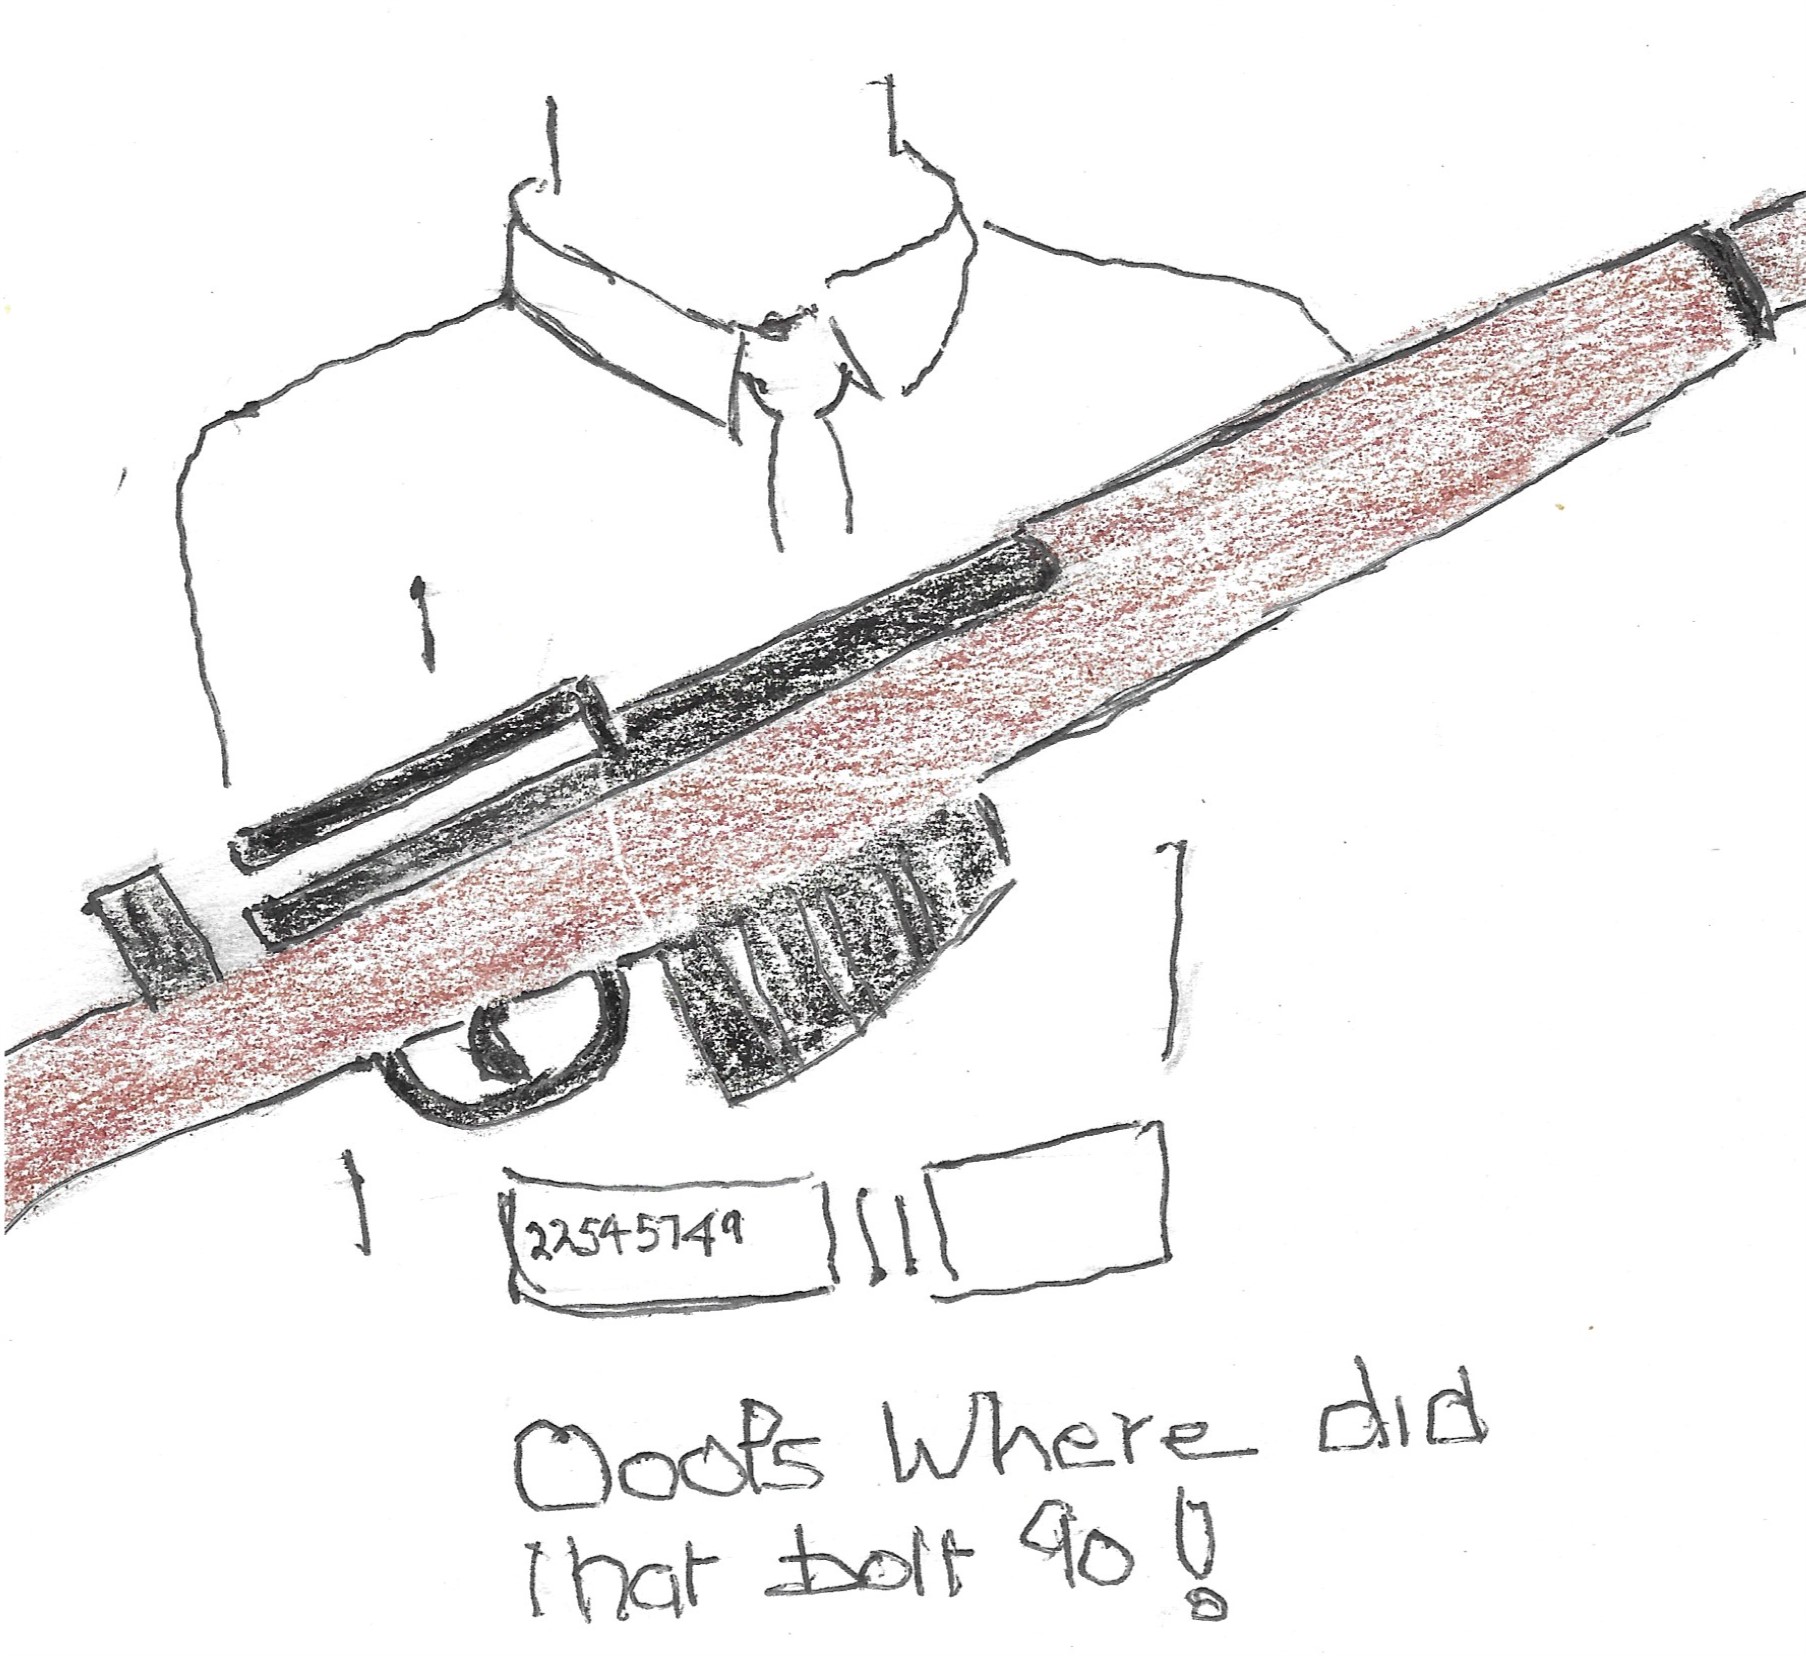 22545749
Ooops Where did
that bolt go!